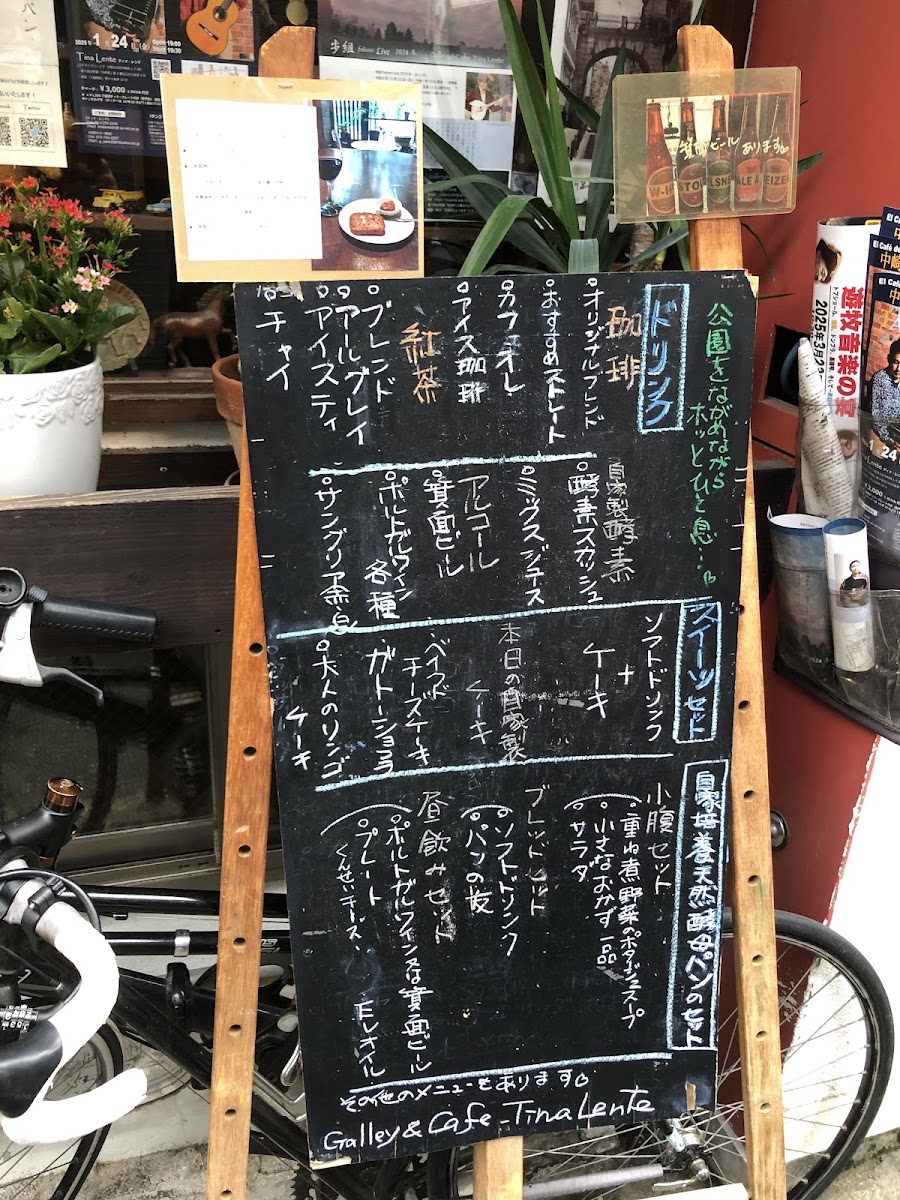 公園をながめながら
ホッとひと息…
ドリンク
珈琲
オリジナルブレンド
おすすめストレート
カフェオレ
アイス珈琲
紅茶
ブレンド
アールグレイ
アイスティ
チャイ
自家製酵素
酵素スカッシュ
ミックスジュース
アルコール
箕面ビール
ポルトガルワイン
各種
サングリア
スイーツセット
ソフトドリンク
+
ケーキ
本日の自家製
ケーキ
ベイクド
チーズケーキ
ガトーショコラ
大人のリンゴ
ケーキ
自家培養天然酵母パンのセット
小腹セット
重ね煮野菜のポタージュスープ
小さなおかず一品
サラダ
ブレッドセット
ソフトドリンク
パンの友
昼飲みセット
ポルトガルワイン又は箕面ビール
プレート
くんせいチーズ
EVオイル
その他のメニューもあります
Galley & Cafe - Tina Lente
箕面ビール
あります
Tina Lente
¥3,000
歩組
Live 2024
Tina Lente
遊牧音楽の宴
El Café de
24